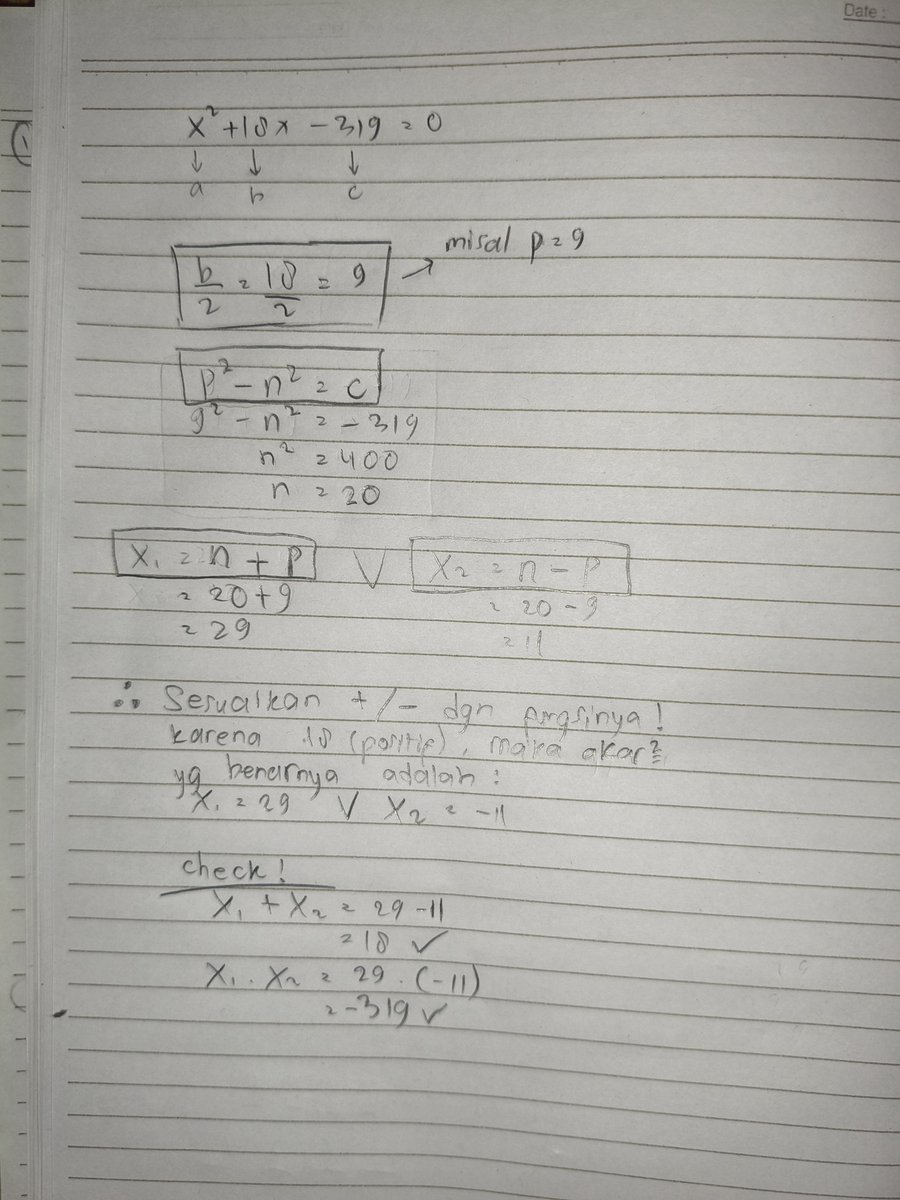 Date :
x² + 18x - 319 = 0
↓ ↓ ↓
a b c
misal p = 9
b/2 = 18/2 = 9 →
p² - n² = c
9² - n² = -319
n² = 400
n = 20
x₁ = n + p V x₂ = n - p
= 20 + 9 = 20 - 9
= 29 = 11
∴ Sesuaikan +/- dgn fungsinya!
karena 18 (positif), maka akar²
yg benarnya adalah :
x₁ = 29 V x₂ = -11
check!
x₁ + x₂ = 29 - 11
= 18 ✓
x₁ . x₂ = 29 . (-11)
= -319 ✓